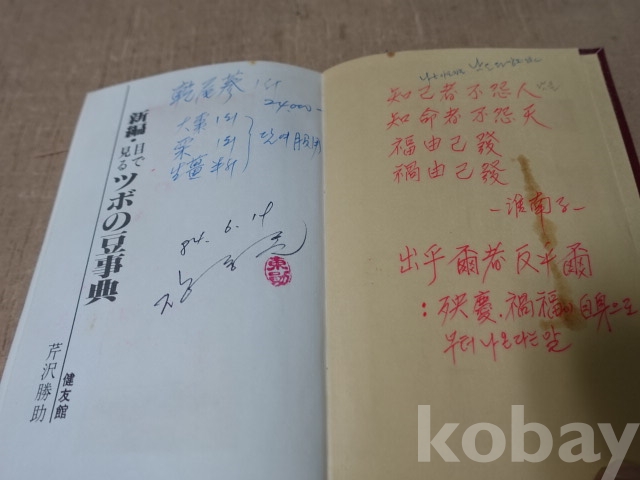 新編・目で見るツボの豆事典
芹沢勝助
健友館
乾尾蔘 1근
24,000-
大棗 1되
栗 1되
生薑 半斤
84. 6. 14
知己者不怨人
知命者不怨天
福由己發
禍由己發
-淮南子-
出乎爾者反乎爾
:殃慶、禍福이 自身으로
우러나온다는 말
kobay